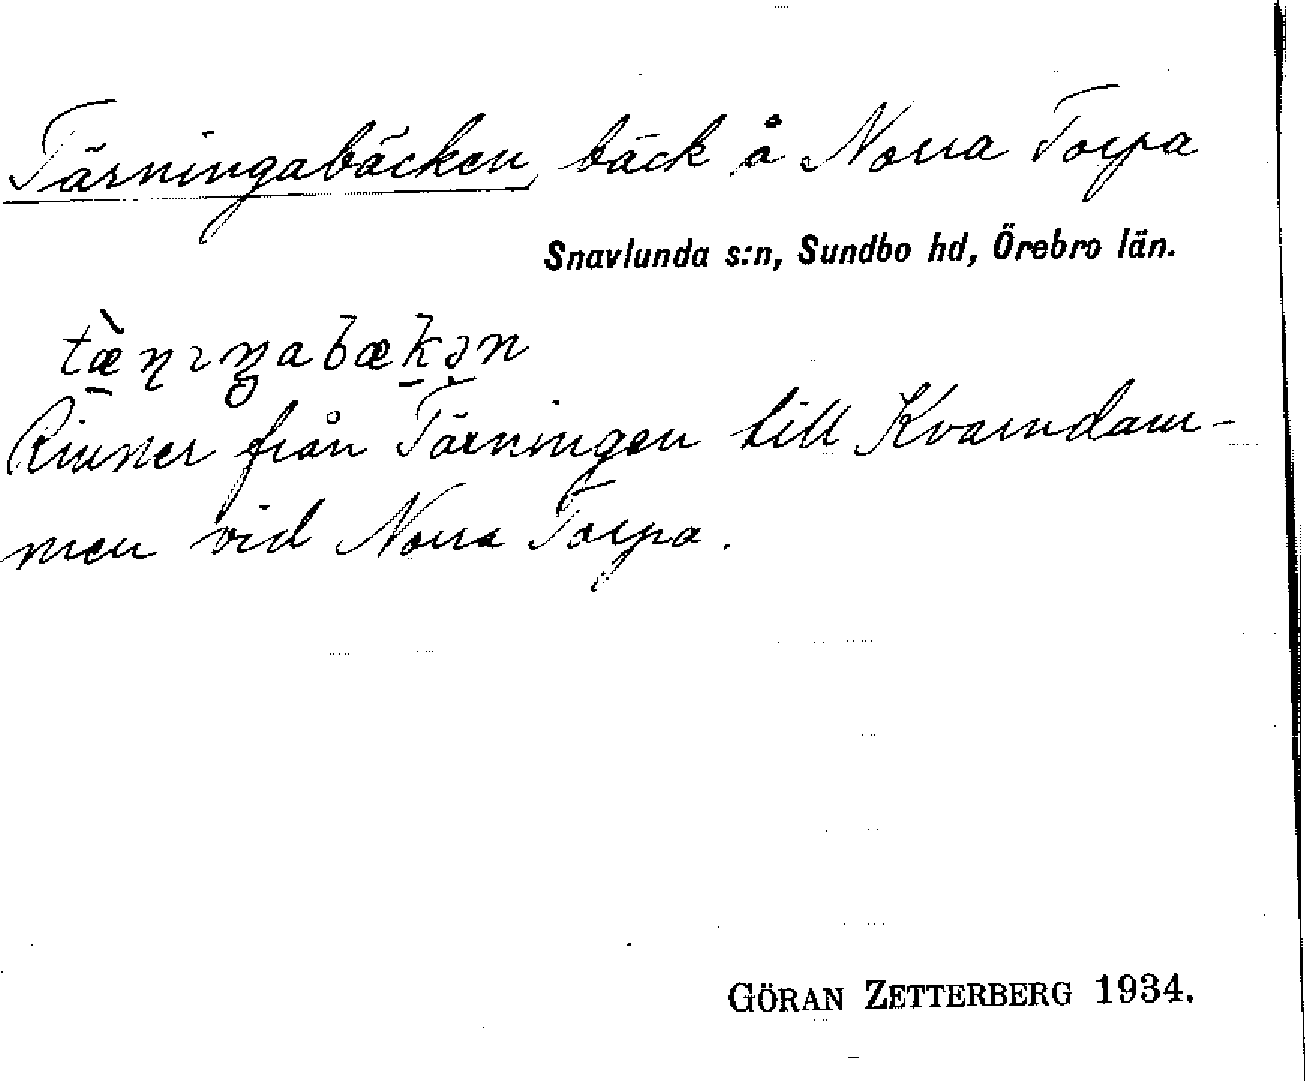 Tärningabäcken, bäck å Norra Torpa
Snavlunda s:n, Sundbo hd, Örebro län.
tæ̀ɳıŋabækən
Rinner från Tärningen till Kvarndam-
men vid Norra Torpa.
GÖRAN ZETTERBERG 1934.